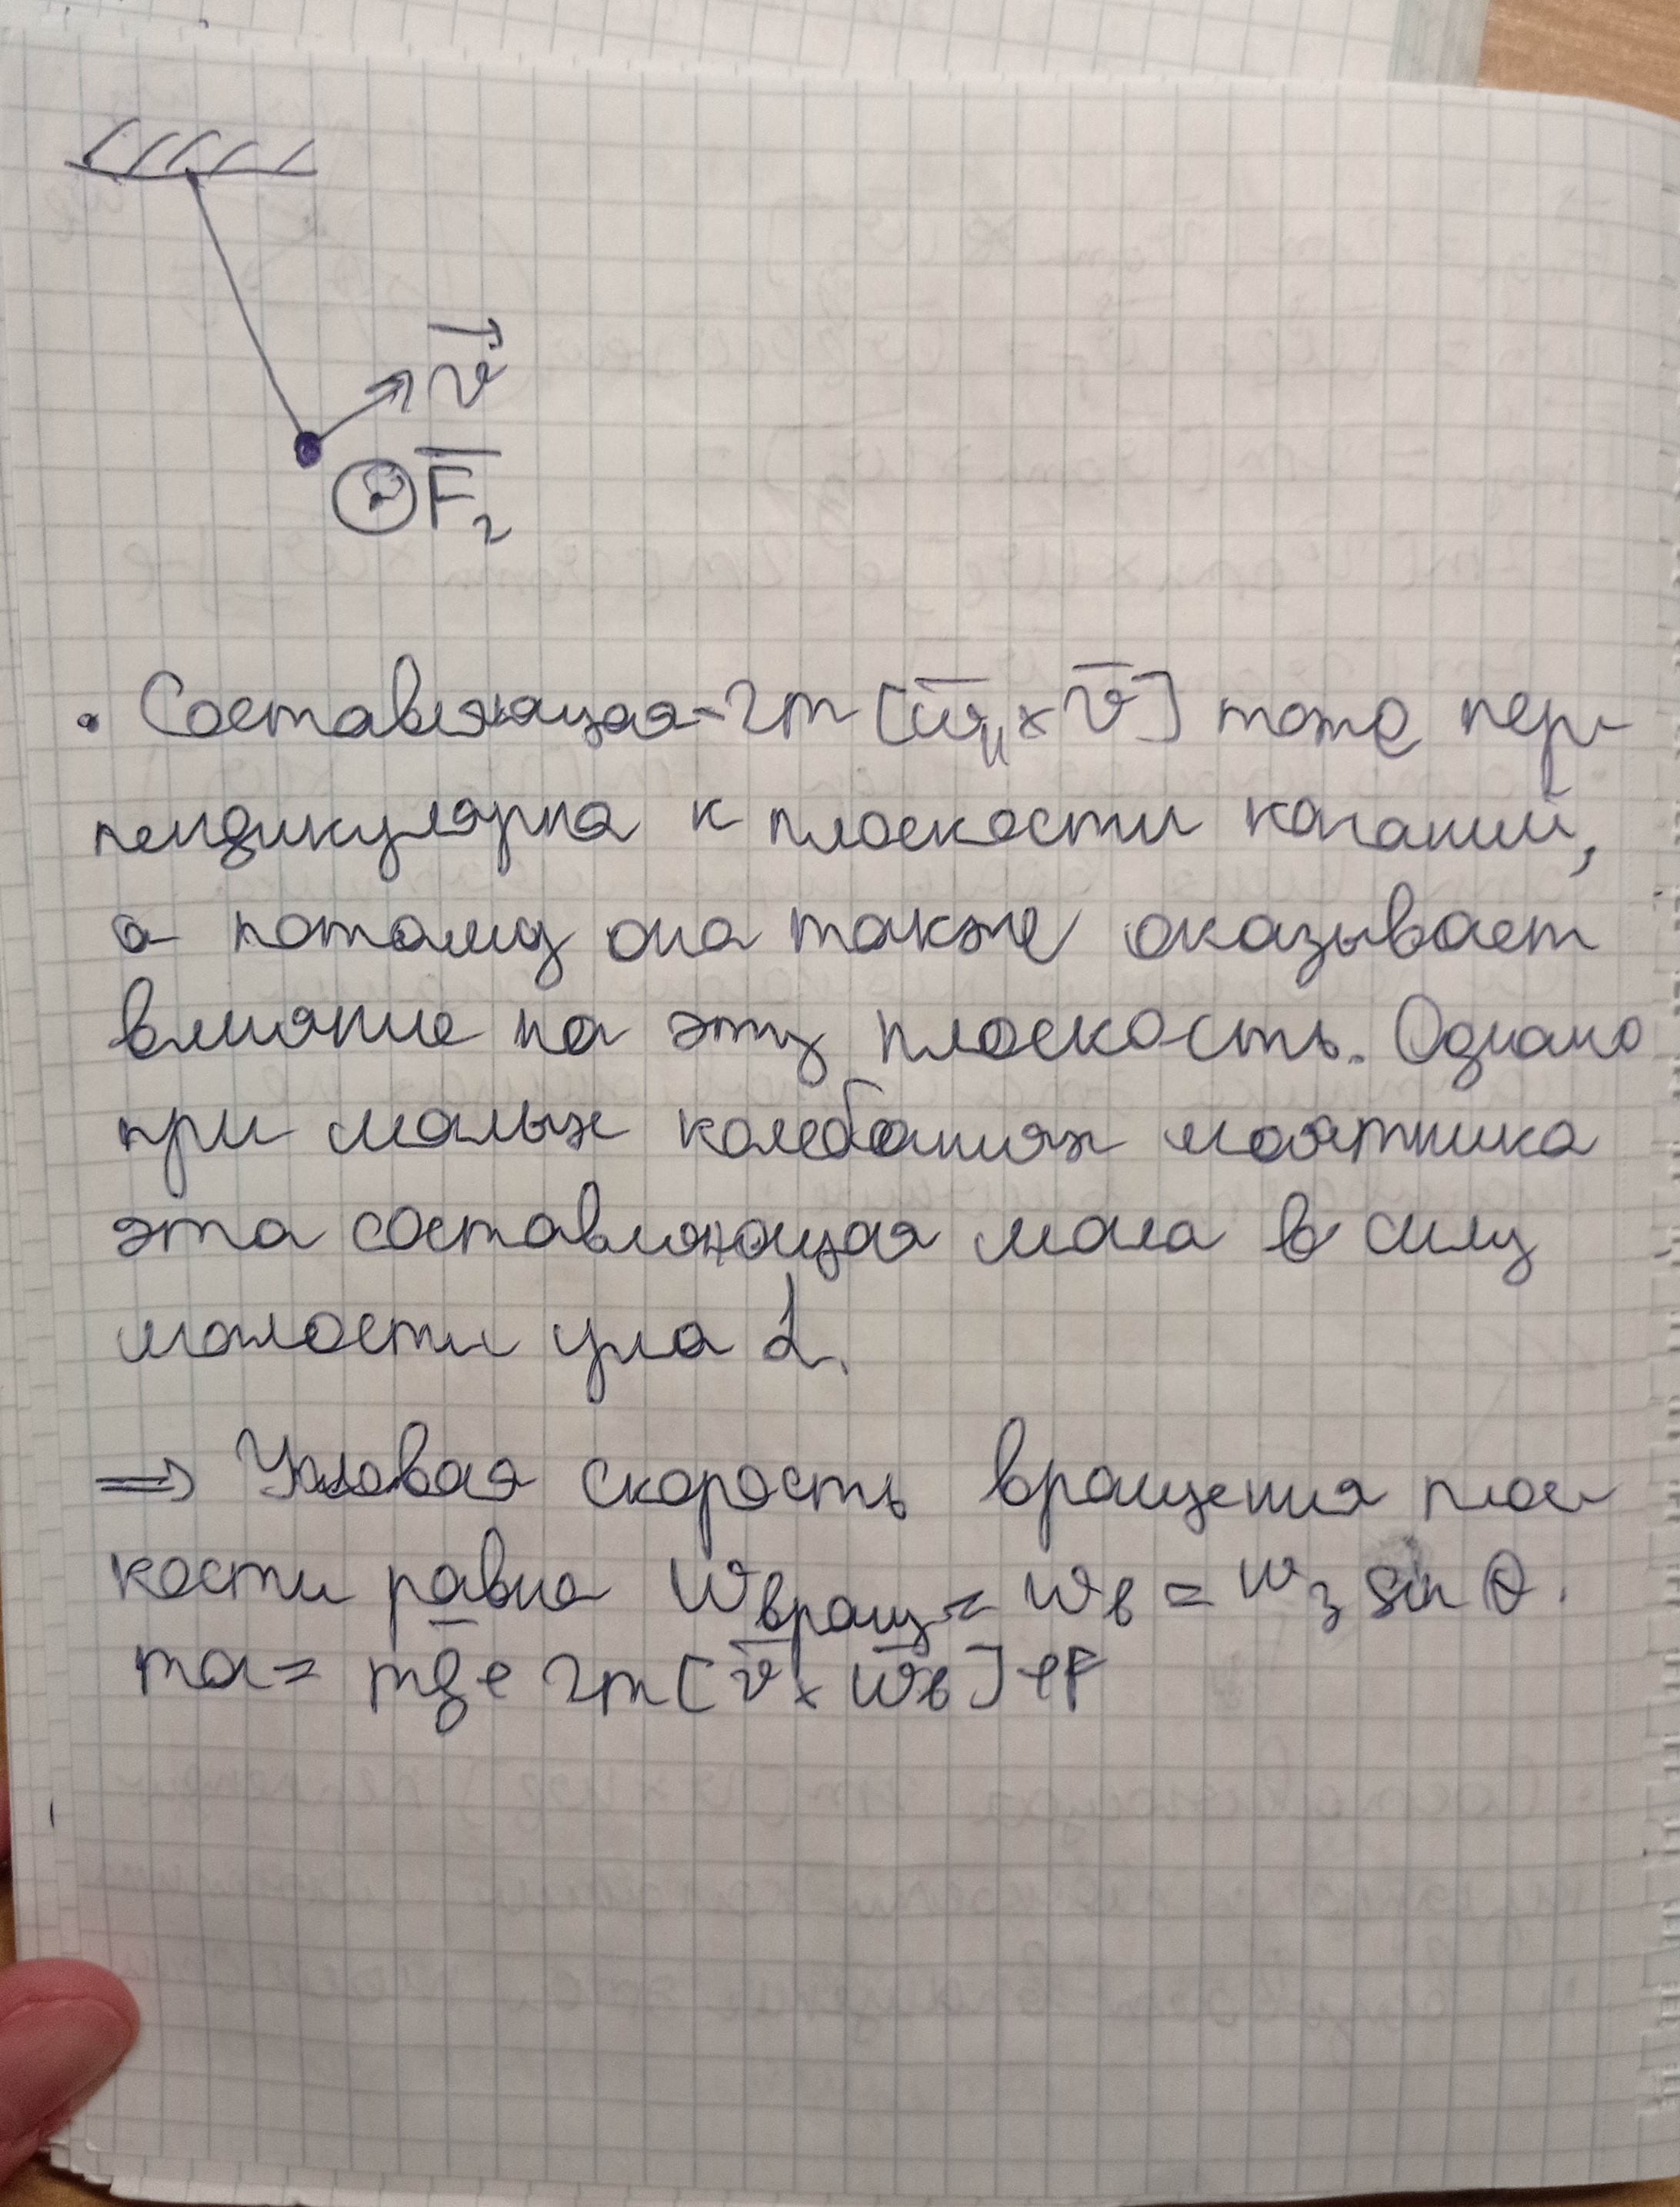 v⃗
F̅₂
• Составляющая -2m [ω̅₁₁ × v̅] тоже пер-
пендикулярна к плоскости качаний,
а потому она также оказывает
влияние на эту плоскость. Однако
при малых колебаниях маятника
эта составляющая мала в силу
малости угла α.
⇒ Угловая скорость вращения плос-
кости равна ω вращ = ωв = ωз sin θ.
ma = mg̅ + 2m [v̅ × ω̅в] + F